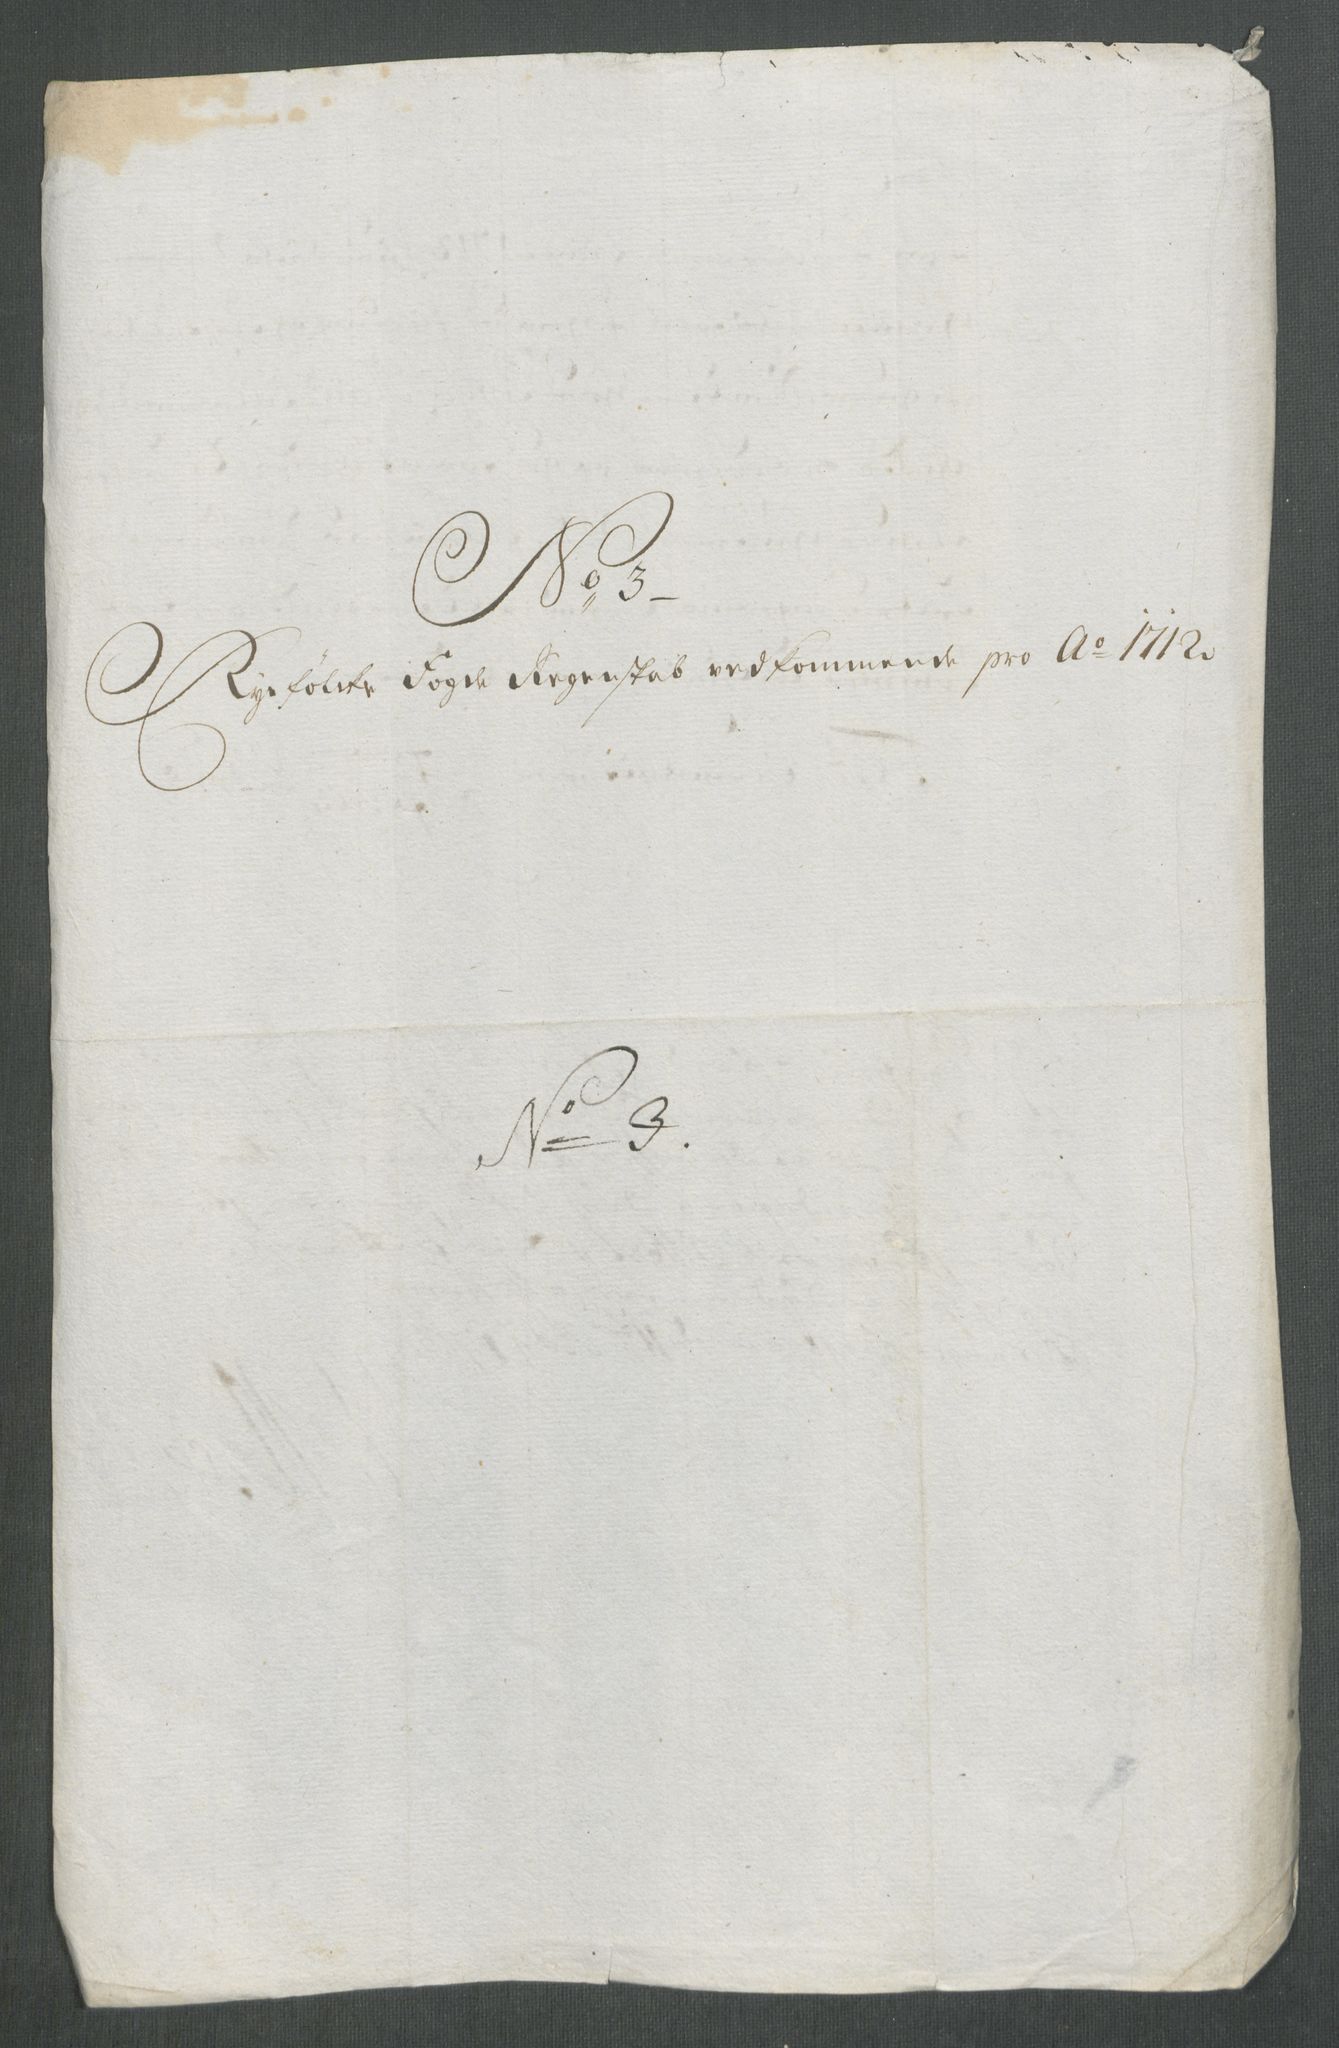 No 3
Ryefölcke Fogde Regenskab vedkommende pro Ao 1712.
No 3.